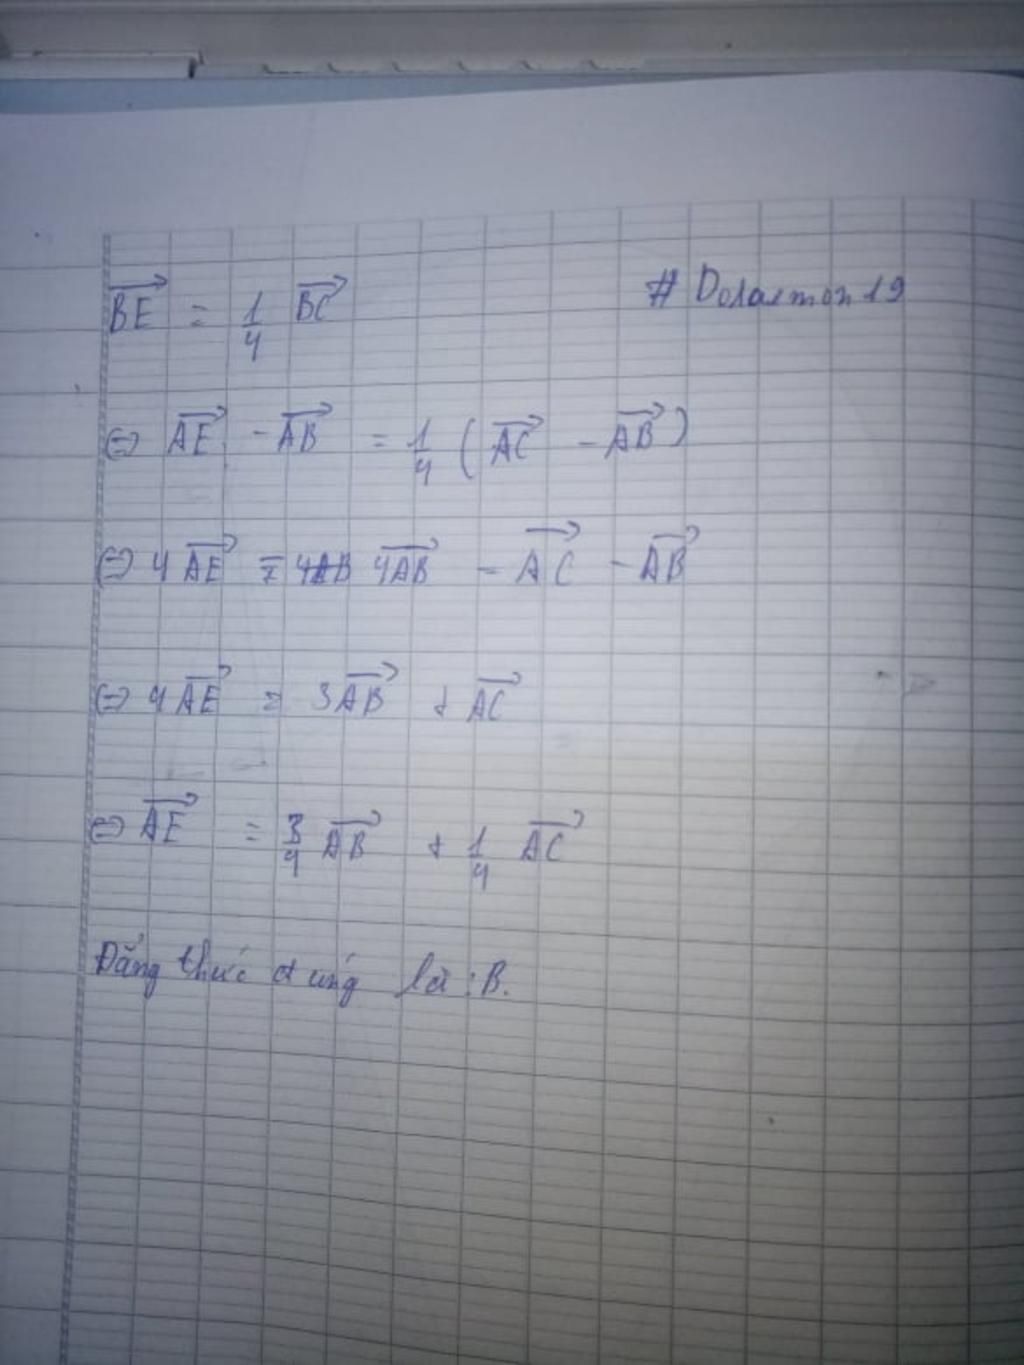 BE = 1/4 BC # Doraemon19
⇔ AE - AB = 1/4 ( AC - AB )
⇔ 4 AE = 4AB 4AB - AC - AB
⇔ 4 AE = 3AB + AC
⇔ AE = 3/4 AB + 1/4 AC
Đẳng thức đúng là : B.